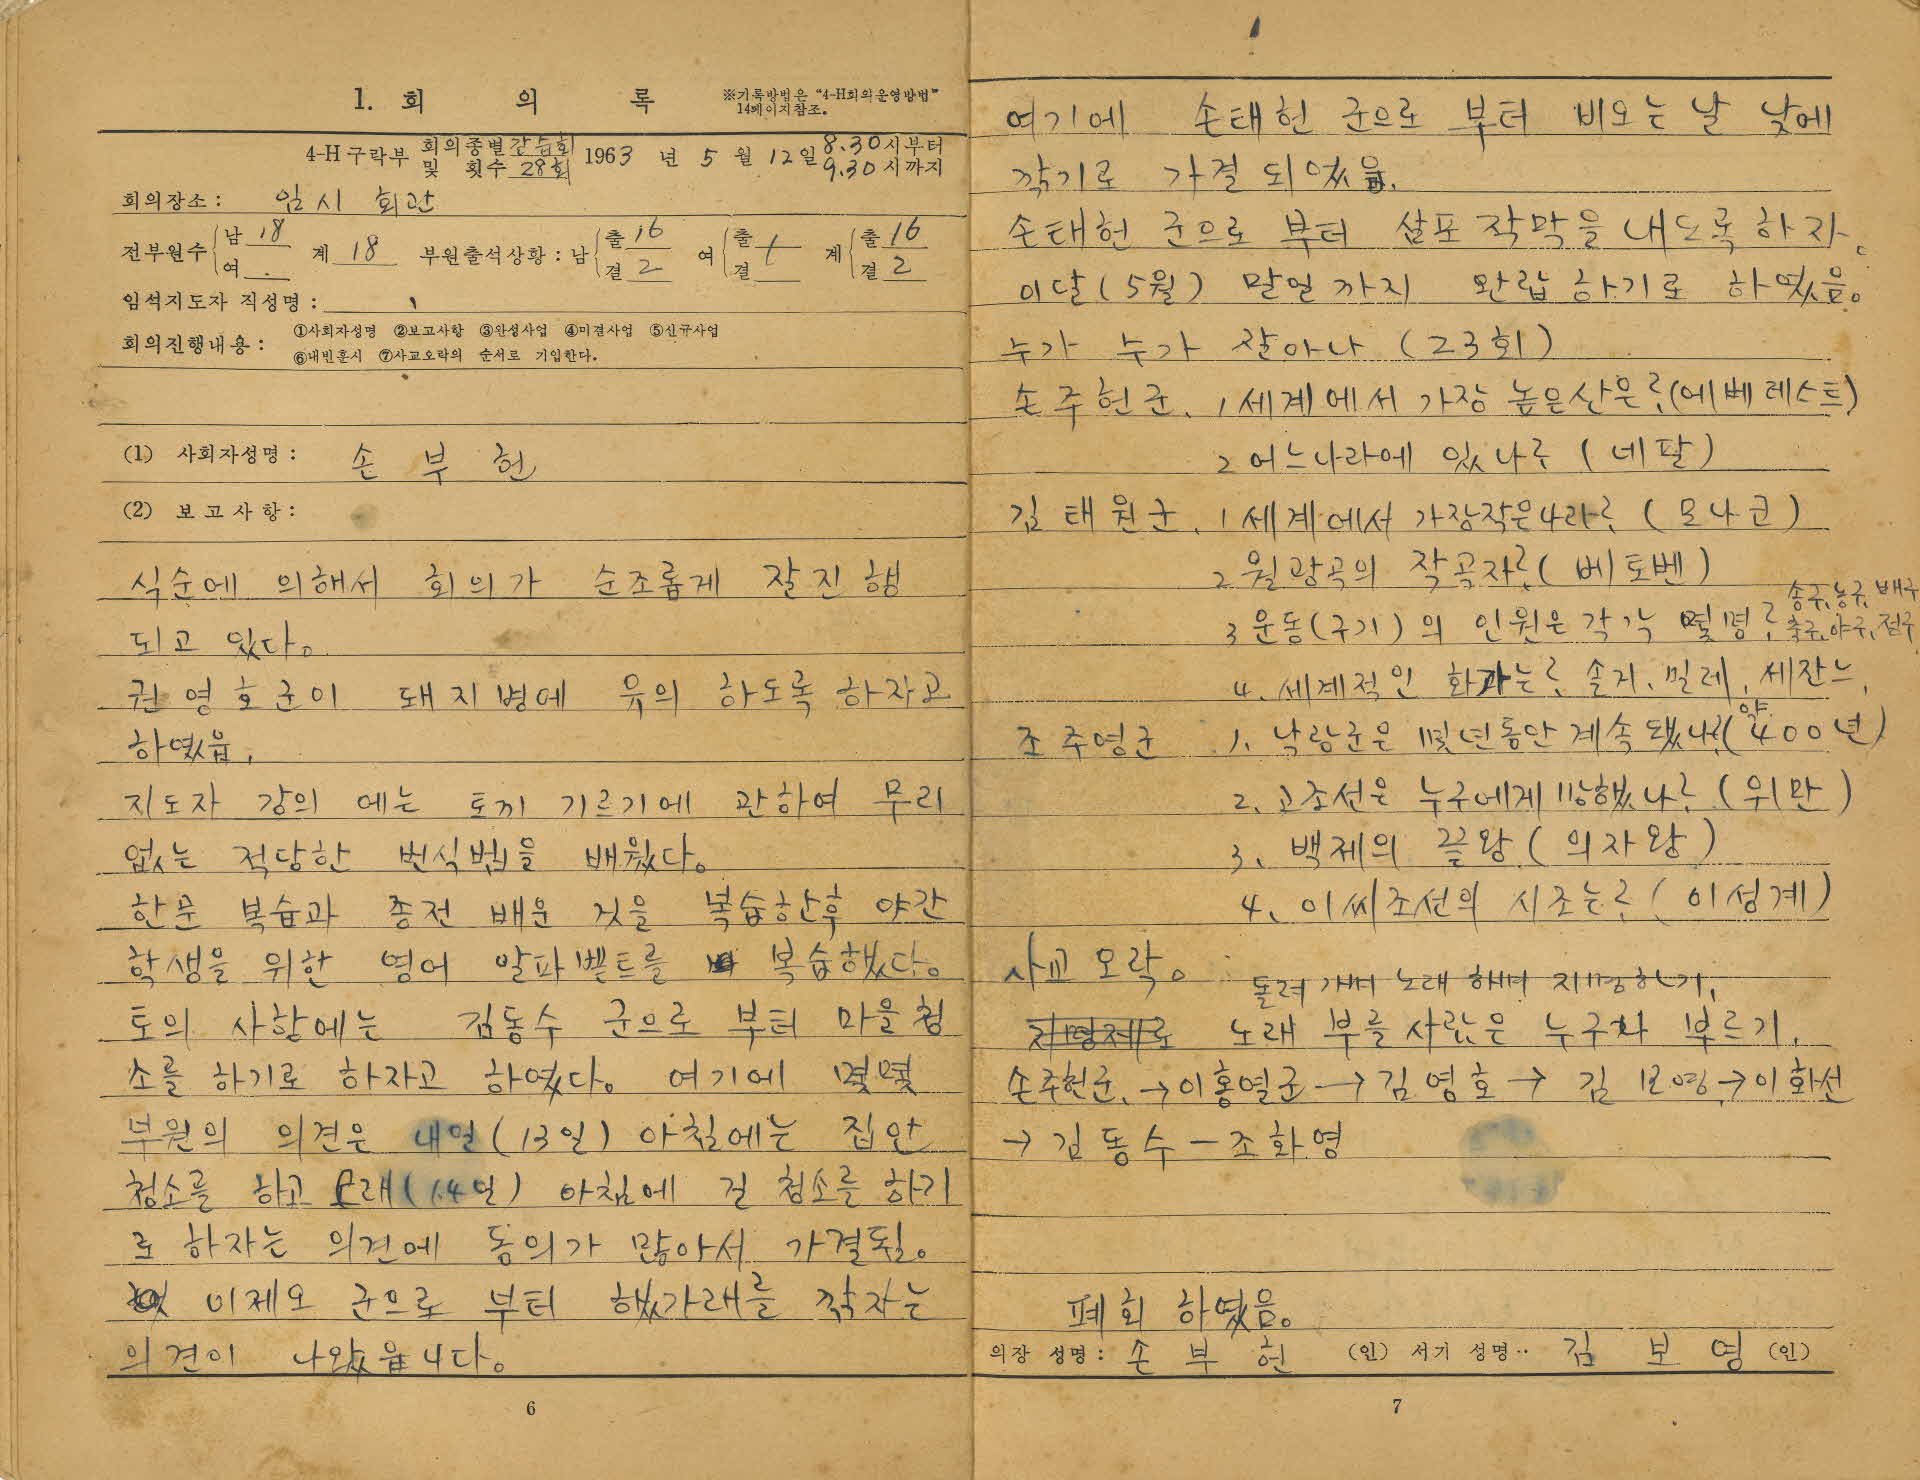 1. 회 의 록
※기록방법은 "4-H회의운영방법"
14페이지참조.
4-H 구락부 회의종별 간습회 및 횟수 28회 1963 년 5 월 12일 8.30시부터 9.30시까지
회의장소 : 임시 회관
전부원수 남 18 여 . 계 18 부원출석상황 : 남 출 16 결 2 여 출 결 계 출 16 결 2
임석지도자 직성명 :
회의진행내용 : ①사회자성명 ②보고사항 ③완성사업 ④미결사업 ⑤신규사업
⑥내빈훈시 ⑦사교오락의 순서로 기입한다.
(1) 사회자성명 : 손 부 헌
(2) 보고사항 :
식순에 의해서 회의가 순조롭게 잘진행
되고 있다。
권영호군이 돼지병에 유의 하도록 하자고
하였음.
지도자 강의 에는 토끼 기르기에 관하여 무리
없는 적당한 번식법을 배웠다。
한문 복습과 종전 배운 것을 복습한후 야간
학생을 위한 영어 알파벨트를 복습했다。
토의 사항에는 김동수 군으로 부터 마을청
소를 하기로 하자고 하였다。 여기에 몇몇
부원의 의견은 내일(13일) 아침에는 집안
청소를 하고 모래(14일) 아침에 길 청소를 하기
로 하자는 의견에 동의가 많아서 가결됨。
이제오 군으로 부터 했가래를 깎자는
의견이 나왔읍니다。
6
여기에 손태헌 군으로 부터 비오는 날 낮에
깎기로 가결되었음.
손태헌 군으로 부터 살포작막을 내도록하자.
이달(5월) 말일까지 완랍하기로 하였음。
누가 누가 잘아나 (23회)
손주헌군. 1 세계에서 가장 높은산은? (에베레스트)
2 어느나라에 있나? (네팔)
김태원군. 1 세계에서 가장작은나라? (모나코)
2 월광곡의 작곡자? (베토벤)
3 운동(구기)의 인원은 각각 몇명? 송구, 농구, 배구
축구, 야구, 정구
4. 세계적인 화가는? 솔거, 밀레, 세잔느,
조주영군 1. 낙랑군은 몇년동안계속됐나? (약 400년)
2. 고조선은 누구에게 망했나? (위만)
3. 백제의 끝왕 (의자왕)
4. 이씨조선의 시조는? (이성계)
사교 오락。 돌려 가며 노래 하며 지명하기,
지명제로 노래 부를사람은 누구차 부르기.
손주헌군. →이홍열군→김영호→ 김보영→이화선
→김동수―조화영
폐회 하였음。
의장 성명 : 손 부 헌 (인) 서기 성명‥ 김 보 영 (인)
7